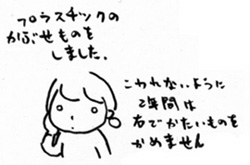 プラスチックの
かぶせものを
しました.
こわれないように
2年間は
右でかたいものを
かめません